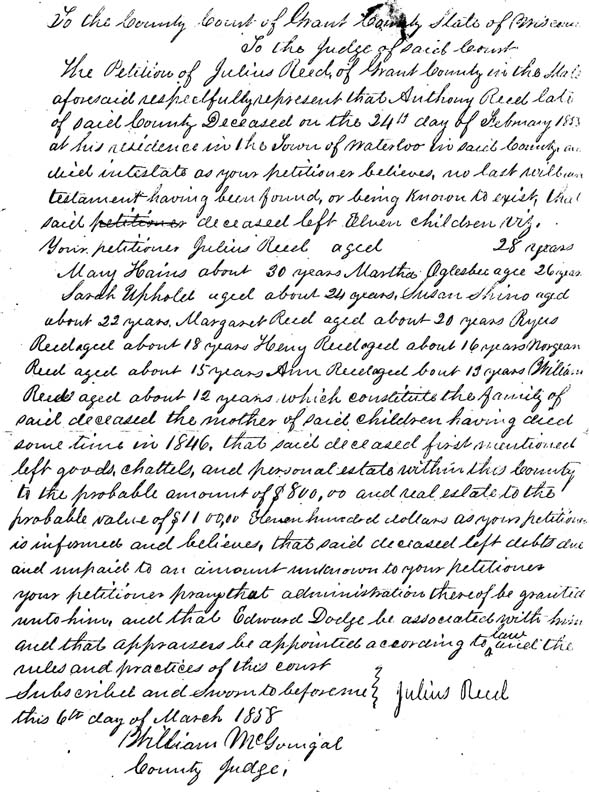 To the County Court of Grant County State of Wiscon
To the Judge of said Court
The Petition of Julius Reed, of Grant County in the State
aforesaid respectfully represent that Anthony Reed late
of said County Deceased on the 24th day of February 1853
at his residence in the Town of Waterloo in said County, an
died intestate as your petitioner believes, no last will an
testament having been found, or being known to exist, that
said petitioner deceased left Eleven children viz.
Your petitioner Julius Reed aged 28 years
Mary Hains about 30 years Martha Oglesbee age 26 year
Sarah Uphold aged about 24 years, Susan Shino aged
about 22 years, Margaret Reed aged about 20 years Ryus
Reed aged about 18 years Heny Reed aged about 16 years Norgean
Reed aged about 15 years Ann Reed aged bout 13 years William
Reed aged about 12 years which constitute the family of
said deceased the mother of said children having died
some time in 1846, that said deceased first mentioned
left goods, chattels, and personal estate within this County
to the probable amount of $800,00 and real estate to the
probable value of $1100,00 Eleven hundred dollars as your petition
is informed and believes, that said deceased left debts due
and unpaid to an amount unknown to your petitioner
your petitioner prays that administration thereof be granted
unto him, and that Edward Dodge be associated with him
and that appraisers be appointed according to law and the
rules and practices of this court
Subscribed and sworn to before me } Julius Reed
this 6th day of March 1858
William McGonigal
County Judge,